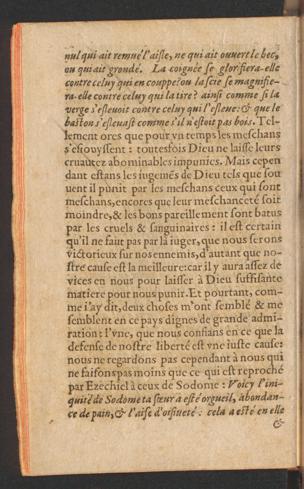 nul qui ait remué l'aisle, ne qui ait ouvert le bec,
ou qui ait grondé. La coignée se glorfiera-elle
contre celuy qui en couppe? ou la scie se magnifie-
ra-elle contre celuy qui la tire? ainsi comme si la
verge s'eslevoit contre celuy qui l'esleue: & que le
baston s'eslevast comme s'il n'estoit pas bois. Tel-
lement ores que pour vn temps les meschans
s'esiouyssent : toutesfois Dieu ne laisse leurs
cruautez abominables impunies. Mais cepen
dant estans les iugemēs de Dieu tels que sou
uent il punit par les meschans ceux qui sont
meschans, encores que leur meschanceté soit
moindre, & les bons pareillement sont batus
par les cruels & sanguinaires : il est certain
qu'il ne faut pas par là iuger, que nous serons
victorieux sur nos ennemis, d'autant que no-
stre cause est la meilleure: car il y aura assez de
vices en nous pour laisser à Dieu suffisante
matiere pour nous punir. Et pourtant, com-
me i'ay dit, deux choses m'ont semblé & me
semblent en ce pays dignes de grande admi-
ration : l'vne, que nous confians en ce que la
defense de nostre liberté est vne iuste cause:
nous ne regardons pas cependant à nous qui
ne faisons pas moins que ce qui est reproché
par Ezechiel à ceux de Sodome : Voicy l'ini-
quité de Sodome ta sœur a esté orgueil, abondan-
ce de pain, & l'aise d'oisiueté : cela a esté en elle
&